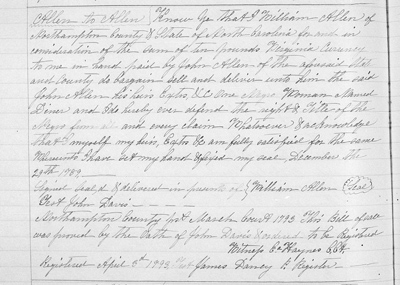 Allen to Allen } Know Ye that I William Allen of
Northampton County & State of North Carolina for and in
consideration of the Sum of ten pounds Virginia Currency
to me in hand paid by John Allen of the aforesaid State
and County do bargain sell and deliver unto him the said
John Allen his heirs Exrs &C One Negro Woman Named
Diner and I do hereby ever defend the right & Title of the
Negro from and every claim Whatsoever & acknowledge
that I myself my heirs Exrs &c am fully satisfied for the same
Whereunto I have set my hand & fixed my seal December the
29th 1789
Signed Seald & delivered in presents of } William Allen (Seal)
Test John Davis
Northampton County March Court 1793 This Bill of sale
was proved by the Oath of John Davis & ordered to be Registered
Witness Haynes
Registered April 3rd 1793 James Register